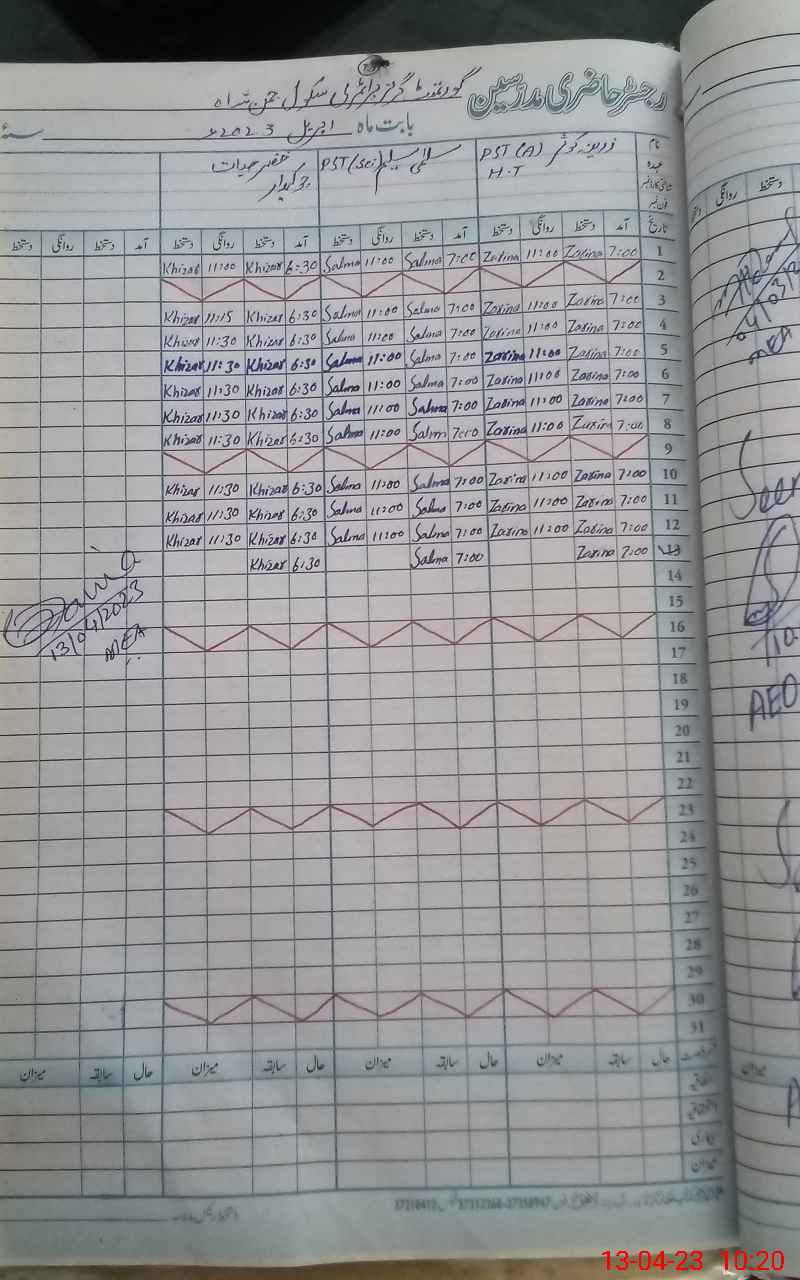 رجسٹر حاضری مدرسین گورنمنٹ گرلز پرائمری سکول
بابت ماہ اپریل 2023ء
نام زرینہ کوثر PST (A) سلمیٰ سلیم PST (Sci) خضر حیات
عہدہ H.T چوکیدار
تاریخ آمد دستخط روانگی دستخط آمد دستخط روانگی دستخط آمد دستخط روانگی دستخط آمد دستخط روانگی دستخط
1 7:00 Zarina 11:00 Zarina 7:00 Salma 11:00 Salma 6:30 Khizar 11:00 Khizar
2
3 7:00 Zarina 11:00 Zarina 7:00 Salma 11:00 Salma 6:30 Khizar 11:15 Khizar
4 7:00 Zarina 11:00 Zarina 7:00 Salma 11:00 Salma 6:30 Khizar 11:30 Khizar
5 7:00 Zarina 11:00 Zarina 7:00 Salma 11:00 Salma 6:30 Khizar 11:30 Khizar
6 7:00 Zarina 11:00 Zarina 7:00 Salma 11:00 Salma 6:30 Khizar 11:30 Khizar
7 7:00 Zarina 11:00 Zarina 7:00 Salma 11:00 Salma 6:30 Khizar 11:30 Khizar
8 7:00 Zarina 11:00 Zarina 7:00 Salma 11:00 Salma 6:30 Khizar 11:30 Khizar
9
10 7:00 Zarina 11:00 Zarina 7:00 Salma 11:00 Salma 6:30 Khizar 11:30 Khizar
11 7:00 Zarina 11:00 Zarina 7:00 Salma 11:00 Salma 6:30 Khizar 11:30 Khizar
12 7:00 Zarina 11:00 Zarina 7:00 Salma 11:00 Salma 6:30 Khizar 11:30 Khizar
13 7:00 Zarina 7:00 Salma 6:30 Khizar
14
15
13/04/2023
MEA
16
17
18
19
20
21
22
23
24
25
26
27
28
29
30
31
حال سابقہ میزان حال سابقہ میزان حال سابقہ میزان حال سابقہ میزان
اتفاقیہ
بیماری
میزان
AEO
13-04-23 10:20